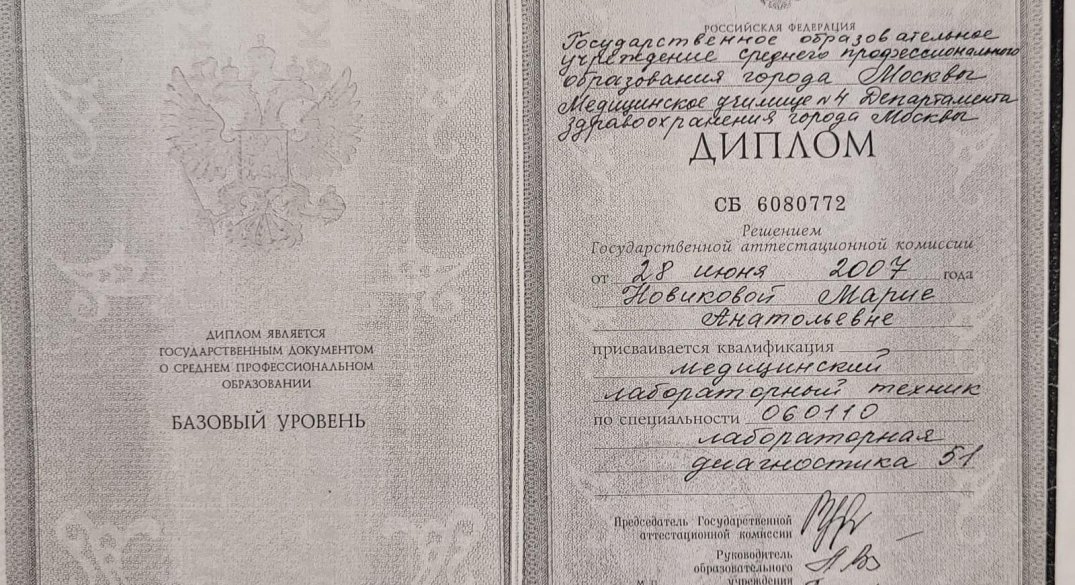 ДИПЛОМ ЯВЛЯЕТСЯ
ГОСУДАРСТВЕННЫМ ДОКУМЕНТОМ
О СРЕДНЕМ ПРОФЕССИОНАЛЬНОМ
ОБРАЗОВАНИИ
БАЗОВЫЙ УРОВЕНЬ
РОССИЙСКАЯ ФЕДЕРАЦИЯ
Государственное образовательное
учреждение среднего профессионального
образования города Москвы
Медицинское училище №4 Департамента
здравоохранения города Москвы
ДИПЛОМ
СБ 6080772
Решением
Государственной аттестационной комиссии
от 28 июня 2007 года
Новиковой Марие
Анатольевне
присваивается квалификация
медицинский
лабораторный техник
по специальности 060110
лабораторная
диагностика 51
Председатель Государственной
аттестационной комиссии
Руководитель
образовательного
М.П. учреждения